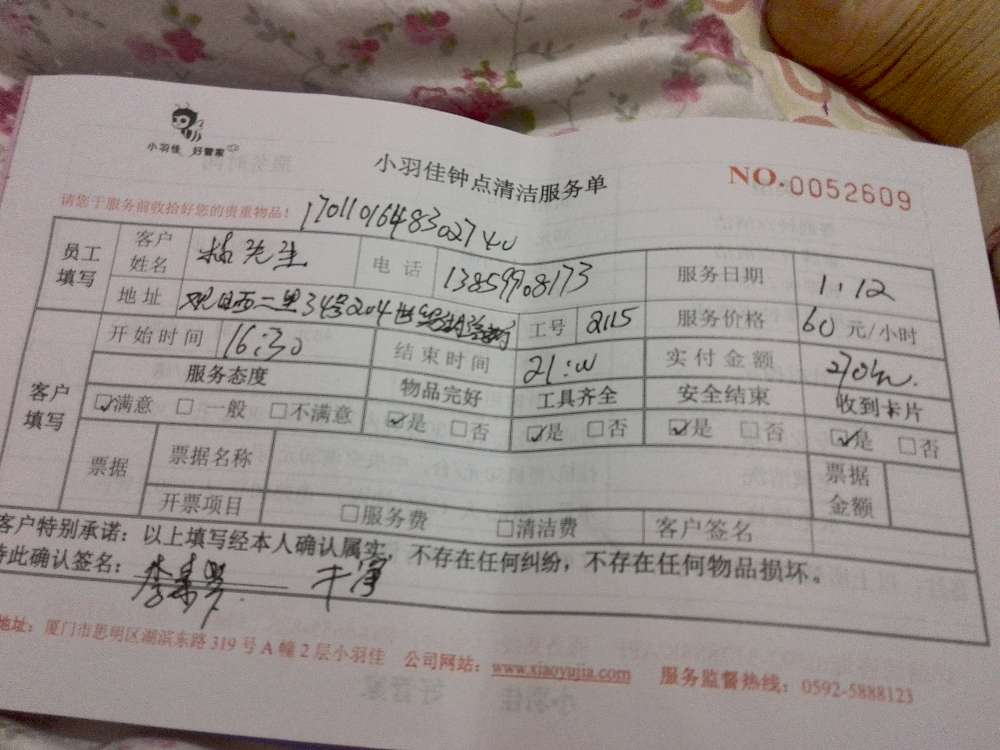 小羽佳 好管家
小羽佳钟点清洁服务单
NO.0052609
请您于服务前收拾好您的贵重物品!
员工填写 客户姓名 先生 电话 13859908173 服务日期 1.12
地址 观日西二里34号204 工号 2115 服务价格 60元/小时
客户填写 开始时间 16:30 结束时间 21:00 实付金额 270
服务态度 物品完好 工具齐全 安全结束 收到卡片
☑满意 □一般 □不满意 ☑是 □否 ☑是 □否 ☑是 □否 ☑是 □否
票据 票据名称 票据金额
开票项目 □服务费 □清洁费 客户签名
客户特别承诺:以上填写经本人确认属实,不存在任何纠纷,不存在任何物品损坏。
特此确认签名:
地址:厦门市思明区湖滨东路319号A幢2层小羽佳 公司网站:www.xiaoyujia.com 服务监督热线:0592-5888123